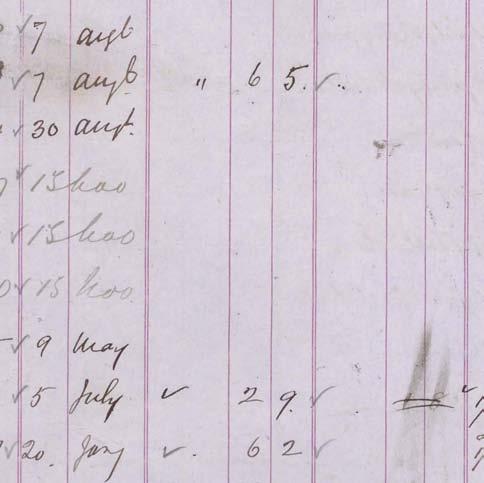 ✓ 7 augt
✓ 7 augt. " 6 5. ✓ ..
✓ 30 augt.
✓ 15 Nov
✓ 15 Nov
✓ 15 Nov
✓ 9 May
✓ 5 July ✓ 2 9. ✓
✓ 20. Jany ✓. 6 2 ✓